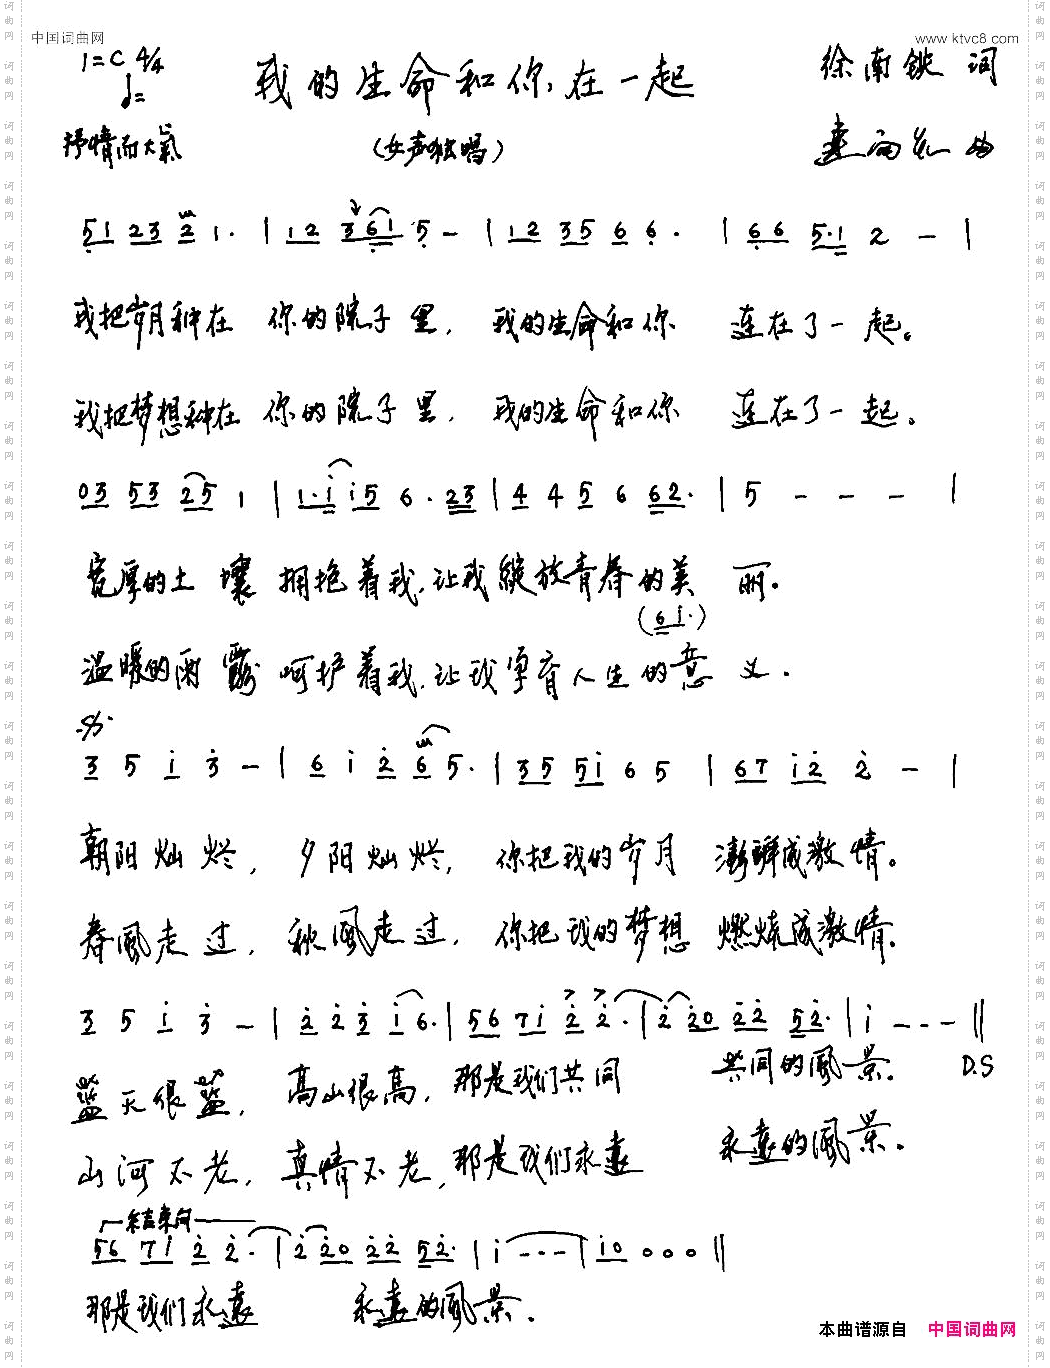 中国词曲网
www.ktvc8.com
1=C 4/4
我的生命和你在一起
徐南铁 词
抒情而大氣
(女声独唱)
曲
51 23 2 1· | 12 361 5 - | 12 35 6 6· | 66 5·1 2 - |
我把岁月种在 你的院子里, 我的生命和你 连在了一起。
我把梦想种在 你的院子里, 我的生命和你 连在了一起。
03 53 25 1 | 1·1 15 6·23 | 4 4 5 6 62· | 5 - - - |
宽厚的土壤 拥抱着我,让我绽放青春的美 丽。
(61·)
温暖的雨露 呵护着我,让我孕育人生的意 义.
3 5 i 3 - | 6 i 2 6 5· | 35 5i 6 5 | 67 i2 2 - |
朝阳灿烂, 夕阳灿烂, 你把我的岁月 澎湃成激情。
春風走过, 秋風走过, 你把我的梦想 燃烧成激情。
3 5 i 3 - | 2 2 3 i 6· | 56 7i 2 2· | 2 20 22 52· | i - - - ‖
蓝天很蓝, 高山很高, 那是我们共同 共同的風景. D.S
山河不老, 真情不老, 那是我们永远 永远的風景。
结束句
56 71 2 2· | 2 20 22 52· | i - - - | i0 0 0 0 ‖
那是我们永远 永远的風景.
本曲谱源自 中国词曲网